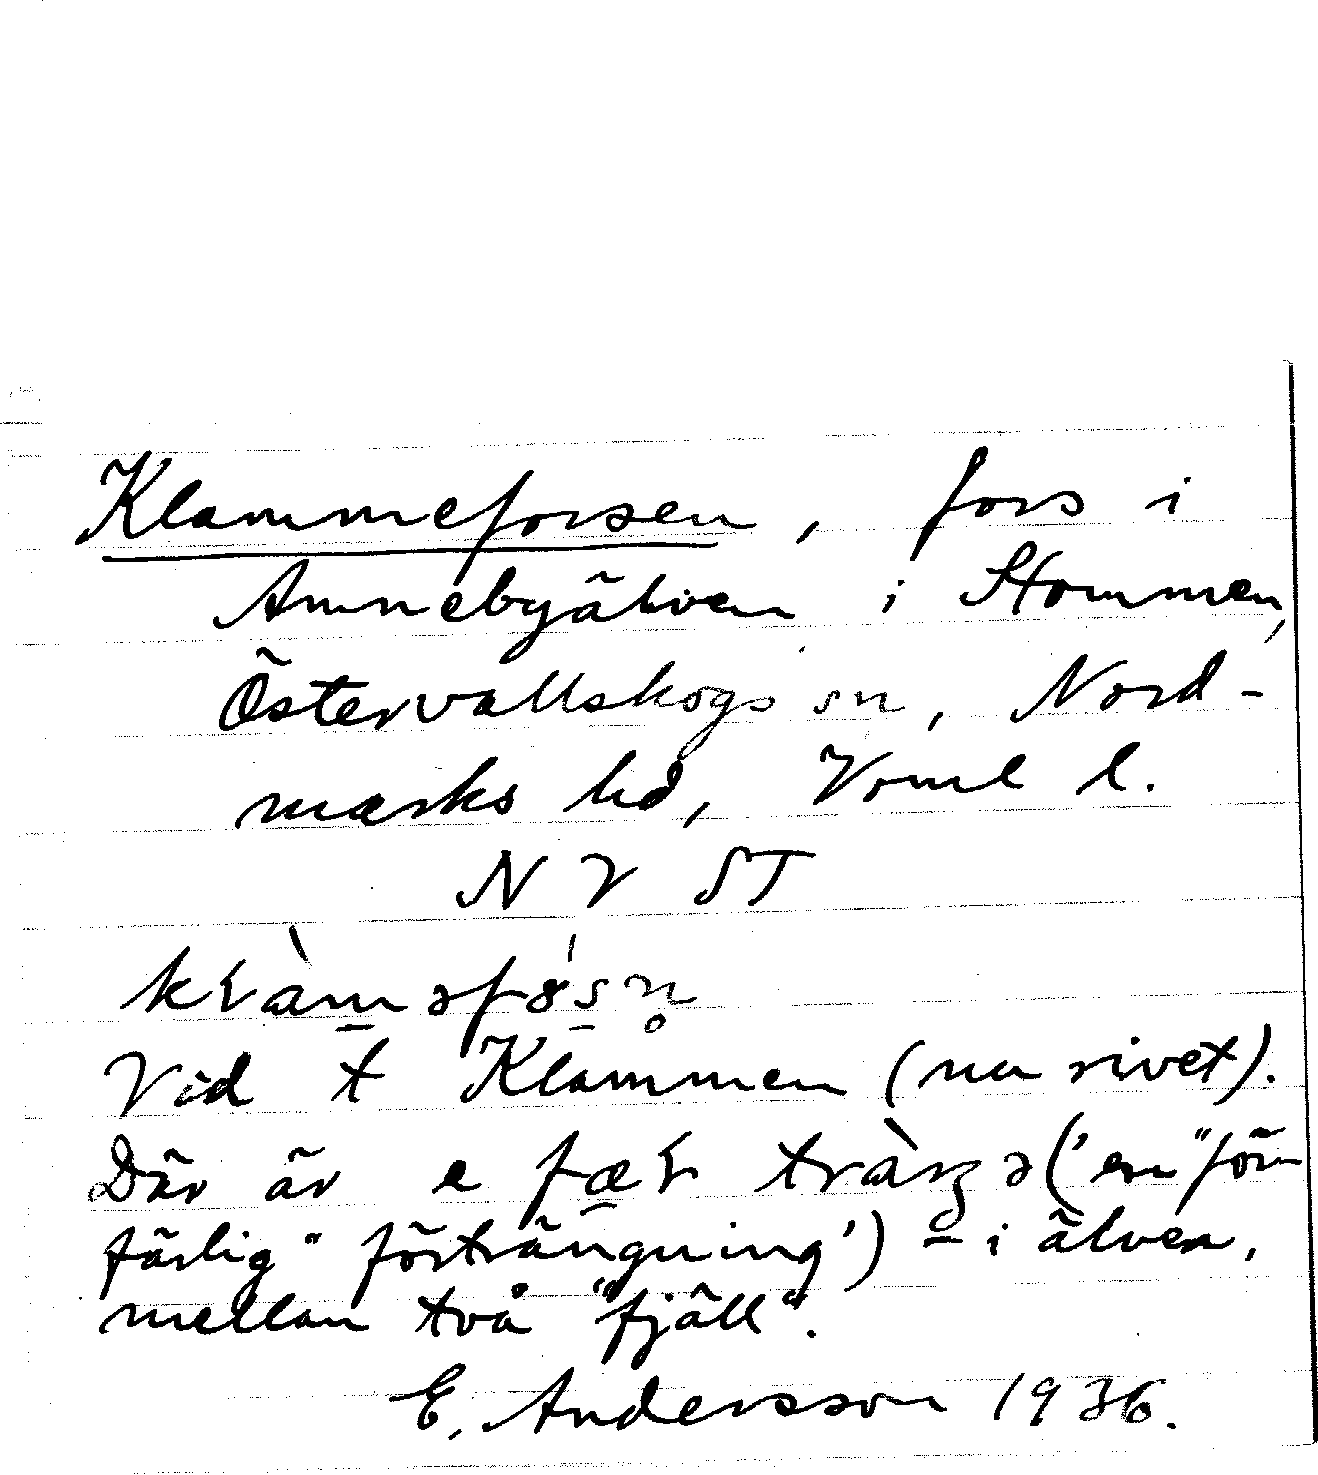 Klammeforsen, fors i
Annebyälven i Stommen,
Östervallskogs sn, Nord-
marks hd, Verml l.
N V ST
Vid t Klammen (nu rivet).
Där är e fæɽ ('en "för-
färlig" förträngning') – i älven,
mellan två "fjäll".
E. Andersson 1936.